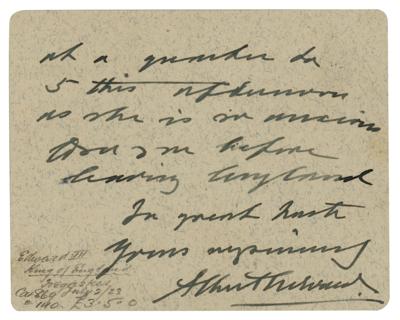 at a quarter to
5 this afternoon
as she is so anxious
to see me before
leaving England
In great haste
Yours very sincerely
Albert Edward.
Edward VII
King of England
Maggs Bros
Cat 369 July 2/23
# 1140. £3.5.0